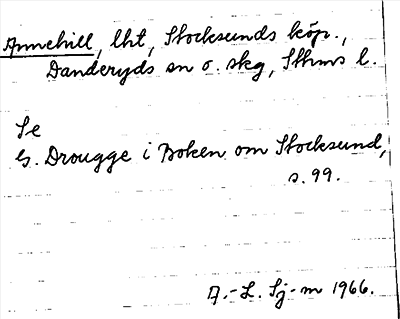 Annehill, lht, Stocksunds köp.,
Danderyds sn o. skg, Sthms l.
Se
G. Drougge i Boken om Stocksund,
s. 99.
A.-L. Sj-m 1966.